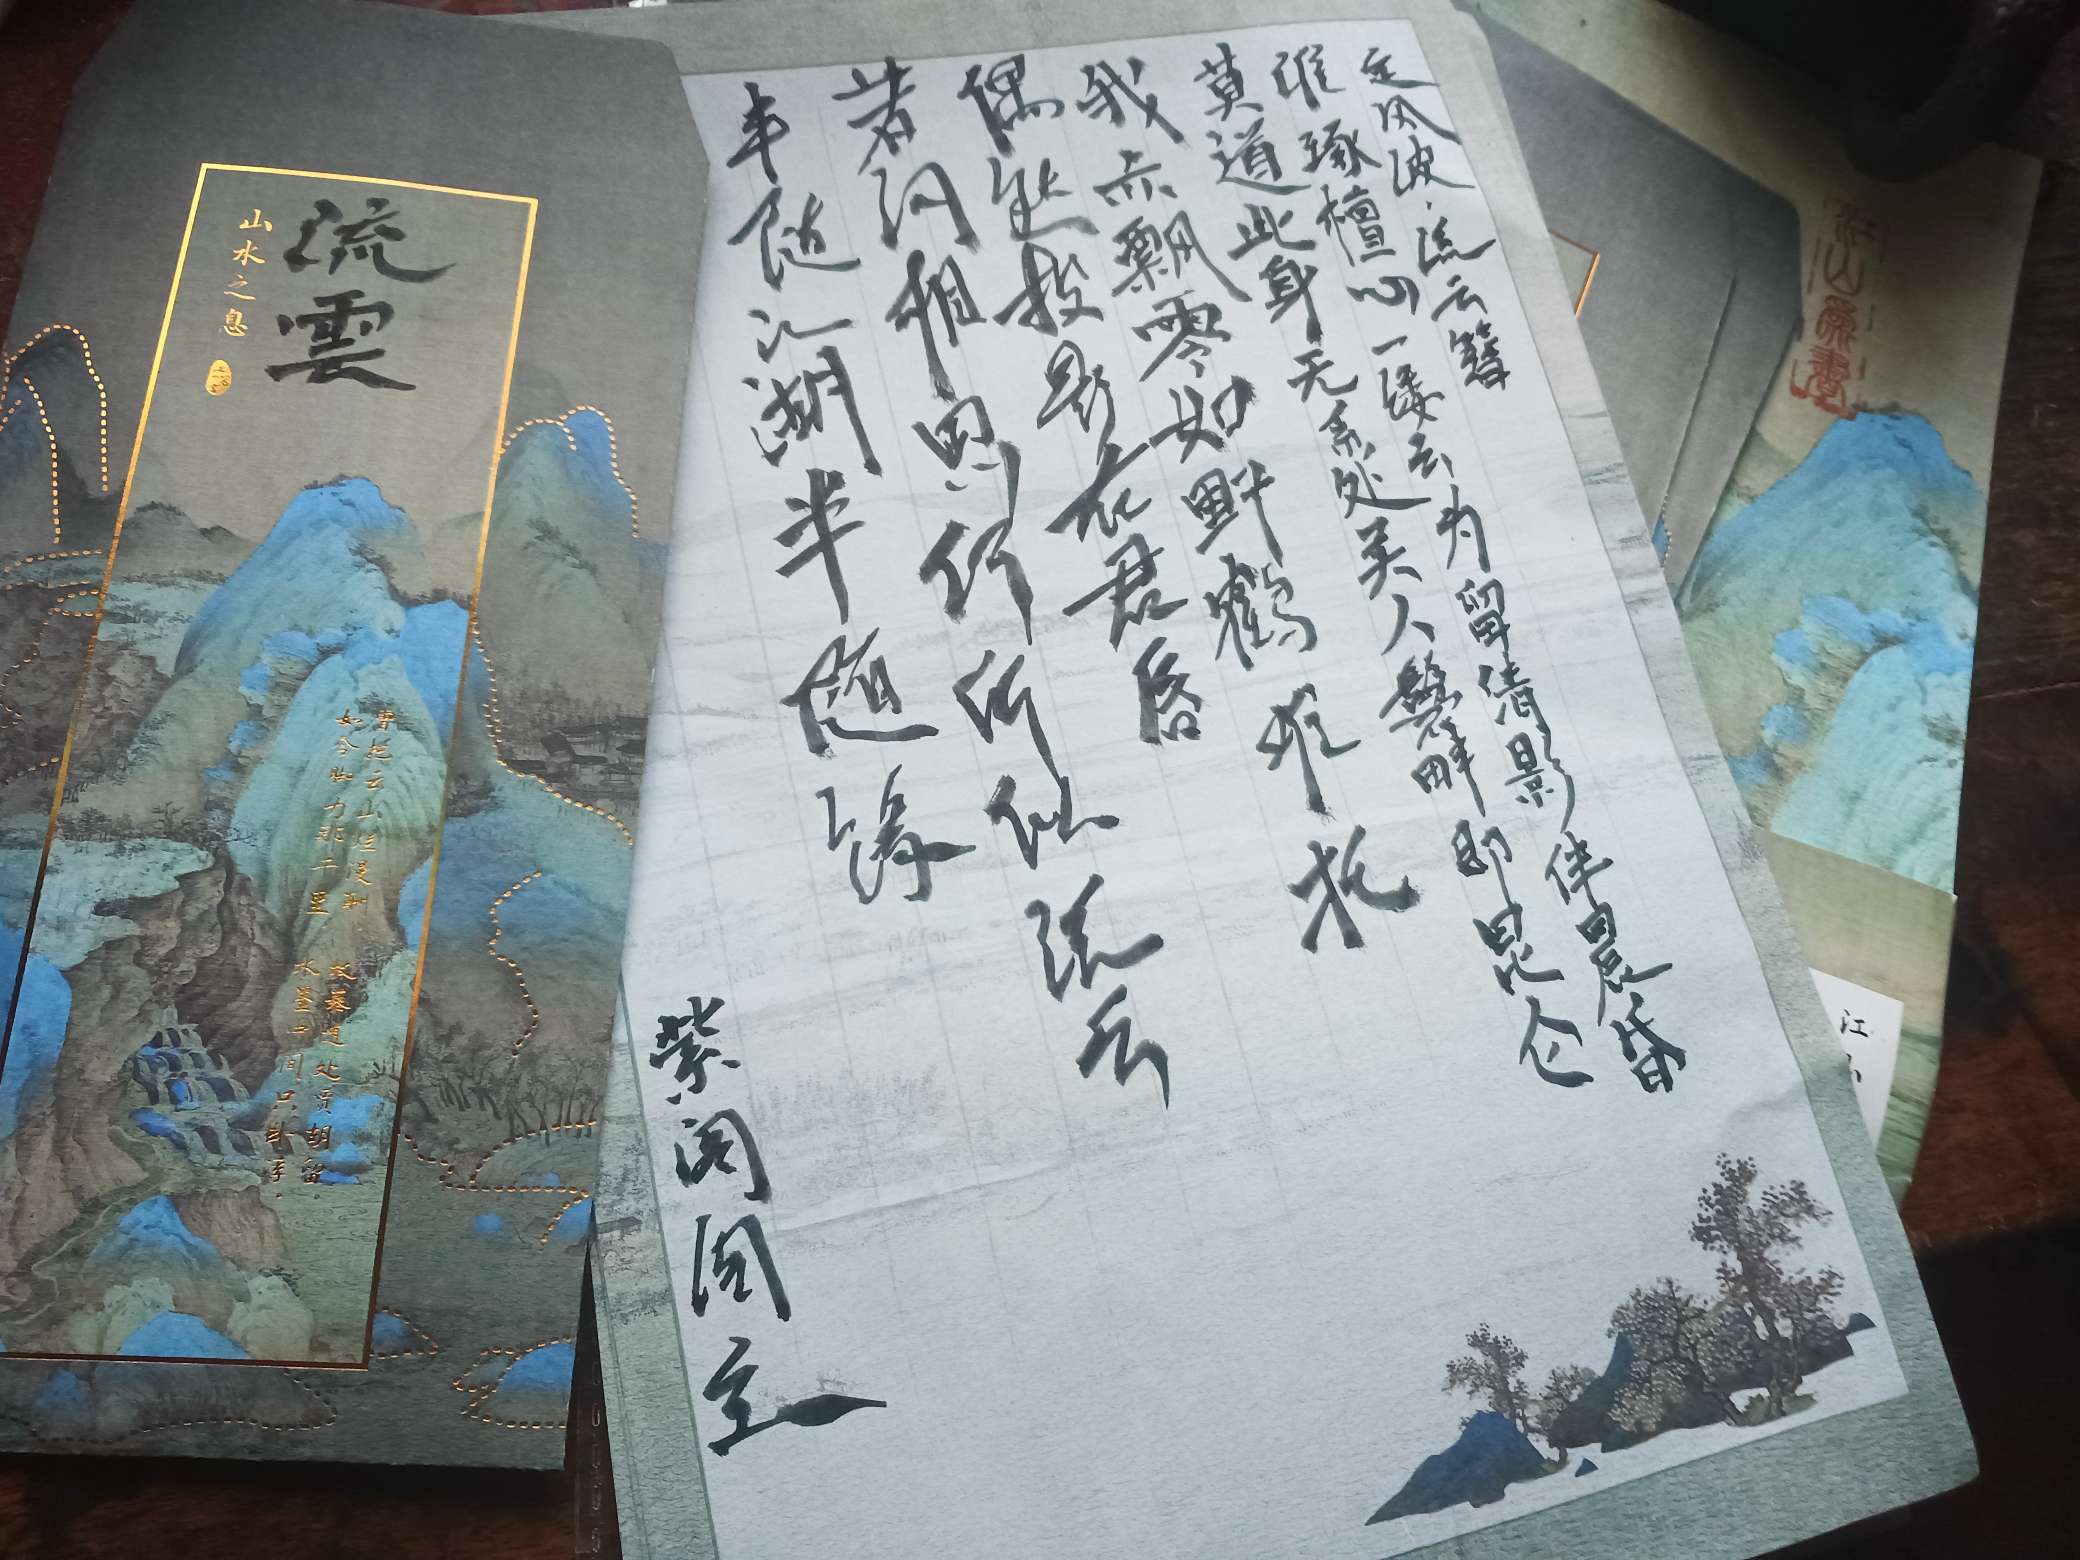 定风波·流云簪
谁琢檀心一缕云 为留倩影伴晨昏
莫道此身无系处 美人鬓畔即昆仑
我亦飘零如野鹤 难托
偶然投影在君唇
若问相思何所似 流云
半随江湖半随缘
紫阁闲主
流雲
山水之息
曾把云山烂漫
如今脚力 千里
故 处 留
水墨 间
江山